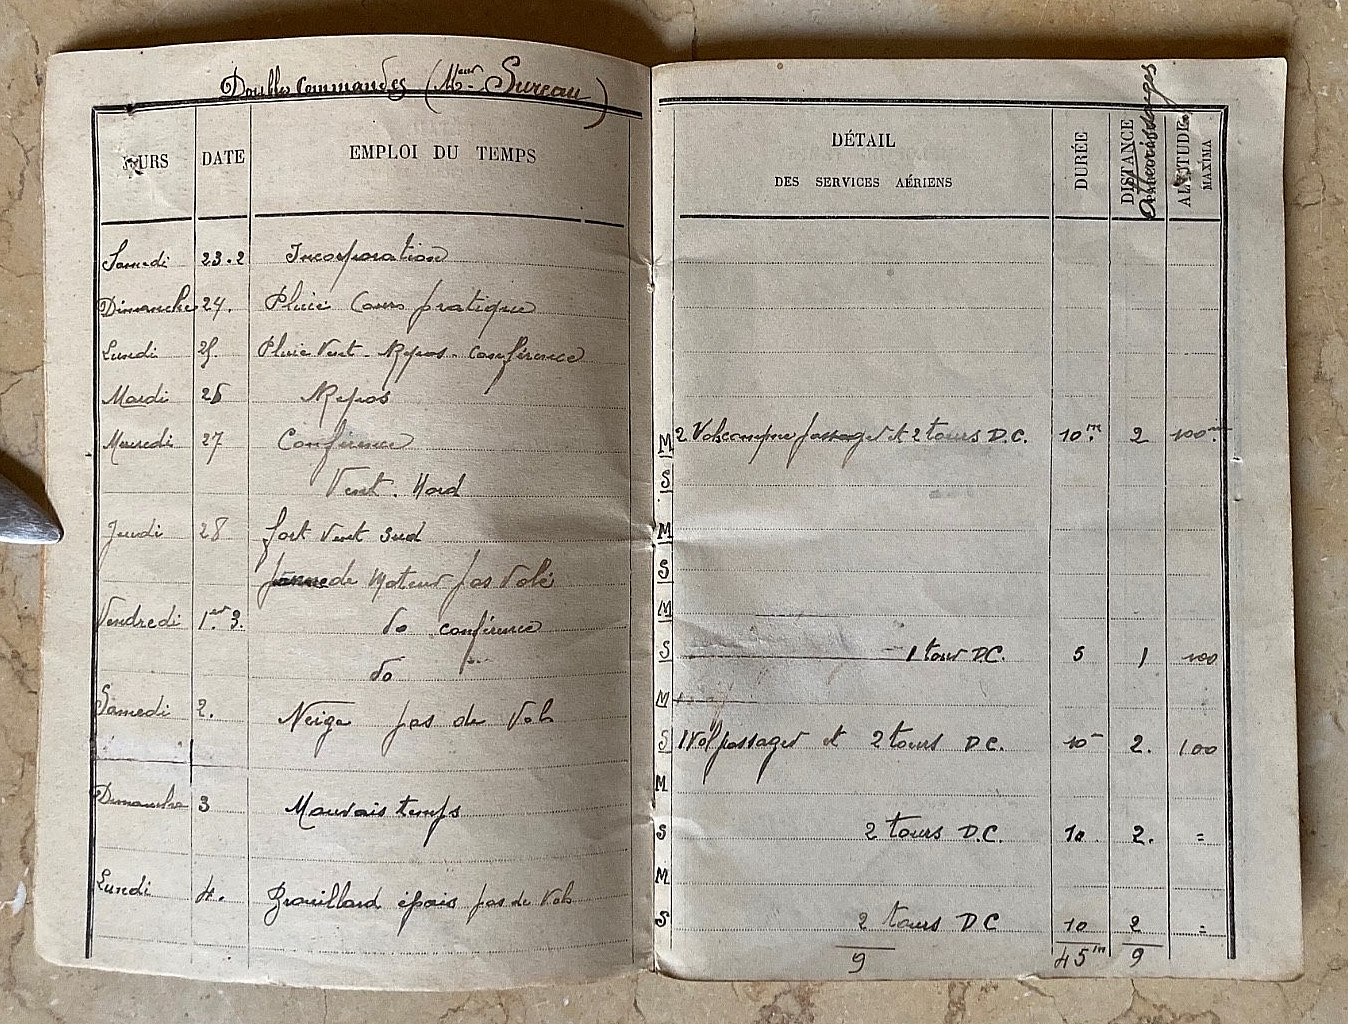 Doubles Commandes (Meur Sureau)
JOURS DATE EMPLOI DU TEMPS
Samedi 23.2 Incorporation
Dimanche 24. Pluie Cours pratique
Lundi 25. Pluie Vent - Repos - Conférence
Mardi 26 Repos
Mercredi 27 Conférence
Vent. Nord
Jeudi 28 fort Vent Sud
panne de Moteur pas Volé
Vendredi 1er 3. do conférence
do
Samedi 2. Neige pas de Vols
Dimanche 3 Mauvais temps
Lundi 4. Brouillard épais pas de Vols
DÉTAIL DES SERVICES AÉRIENS DURÉE DISTANCE Atterrissages ALTITUDE MAXIMA
M 2 Vols comme passager et 2 tours D.C. 10m. 2 100m.
S
M
S
M
S 1 tour D.C. 5 1 100
M
S 1 Vol passager et 2 tours D.C. 10m 2. 100
M
S 2 tours D.C. 10 2. =
M
S 2 tours D C 10 2 =
9 45m 9